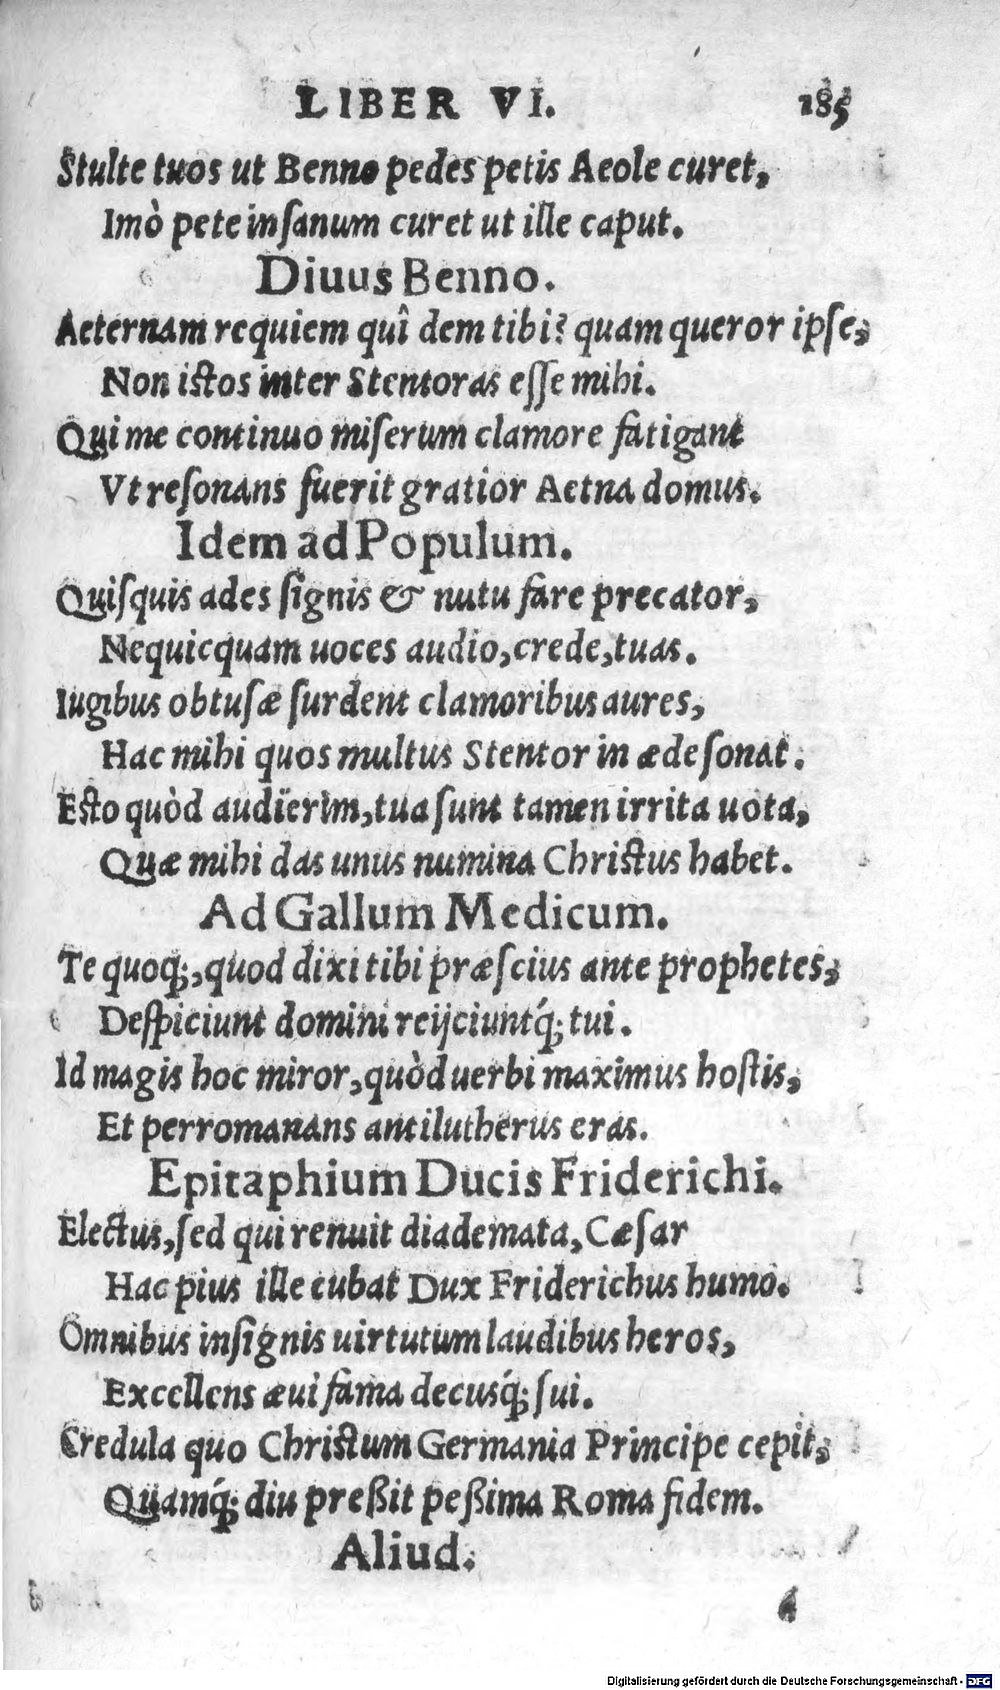 LIBER VI. 185
Stulte tuos ut Benno pedes petis Aeole curet,
Imò pete insanum curet ut ille caput.
Diuus Benno.
Aeternam requiem quî dem tibi? quam queror ipse,
Non istos inter Stentoras esse mihi.
Qui me continuo miserum clamore fatigant
Vt resonans fuerit gratior Aetna domus.
Idem ad Populum.
Quisquis ades signis & nutu fare precator,
Nequicquam uoces audio, crede, tuas.
Iugibus obtusæ surdent clamoribus aures,
Hac mihi quos multus Stentor in æde sonat.
Esto quòd audïerim, tua sunt tamen irrita uota,
Quæ mihi das unus numina Christus habet.
Ad Gallum Medicum.
Te quoq;, quod dixi tibi præscius ante prophetes,
Despiciunt domini reijciuntq́; tui.
Id magis hoc miror, quòd uerbi maximus hostis,
Et perromanans antilutherus eras.
Epitaphium Ducis Friderichi.
Electus, sed qui renuit diademata, Cæsar
Hac pius ille cubat Dux Friderichus humo.
Omnibus insignis uirtutum laudibus heros,
Excellens æui fama decusq́; sui.
Credula quo Christum Germania Principe cepit,
Quamq́; diu preßit peßima Roma fidem.
Aliud.
Digitalisierung gefördert durch die Deutsche Forschungsgemeinschaft - DFG